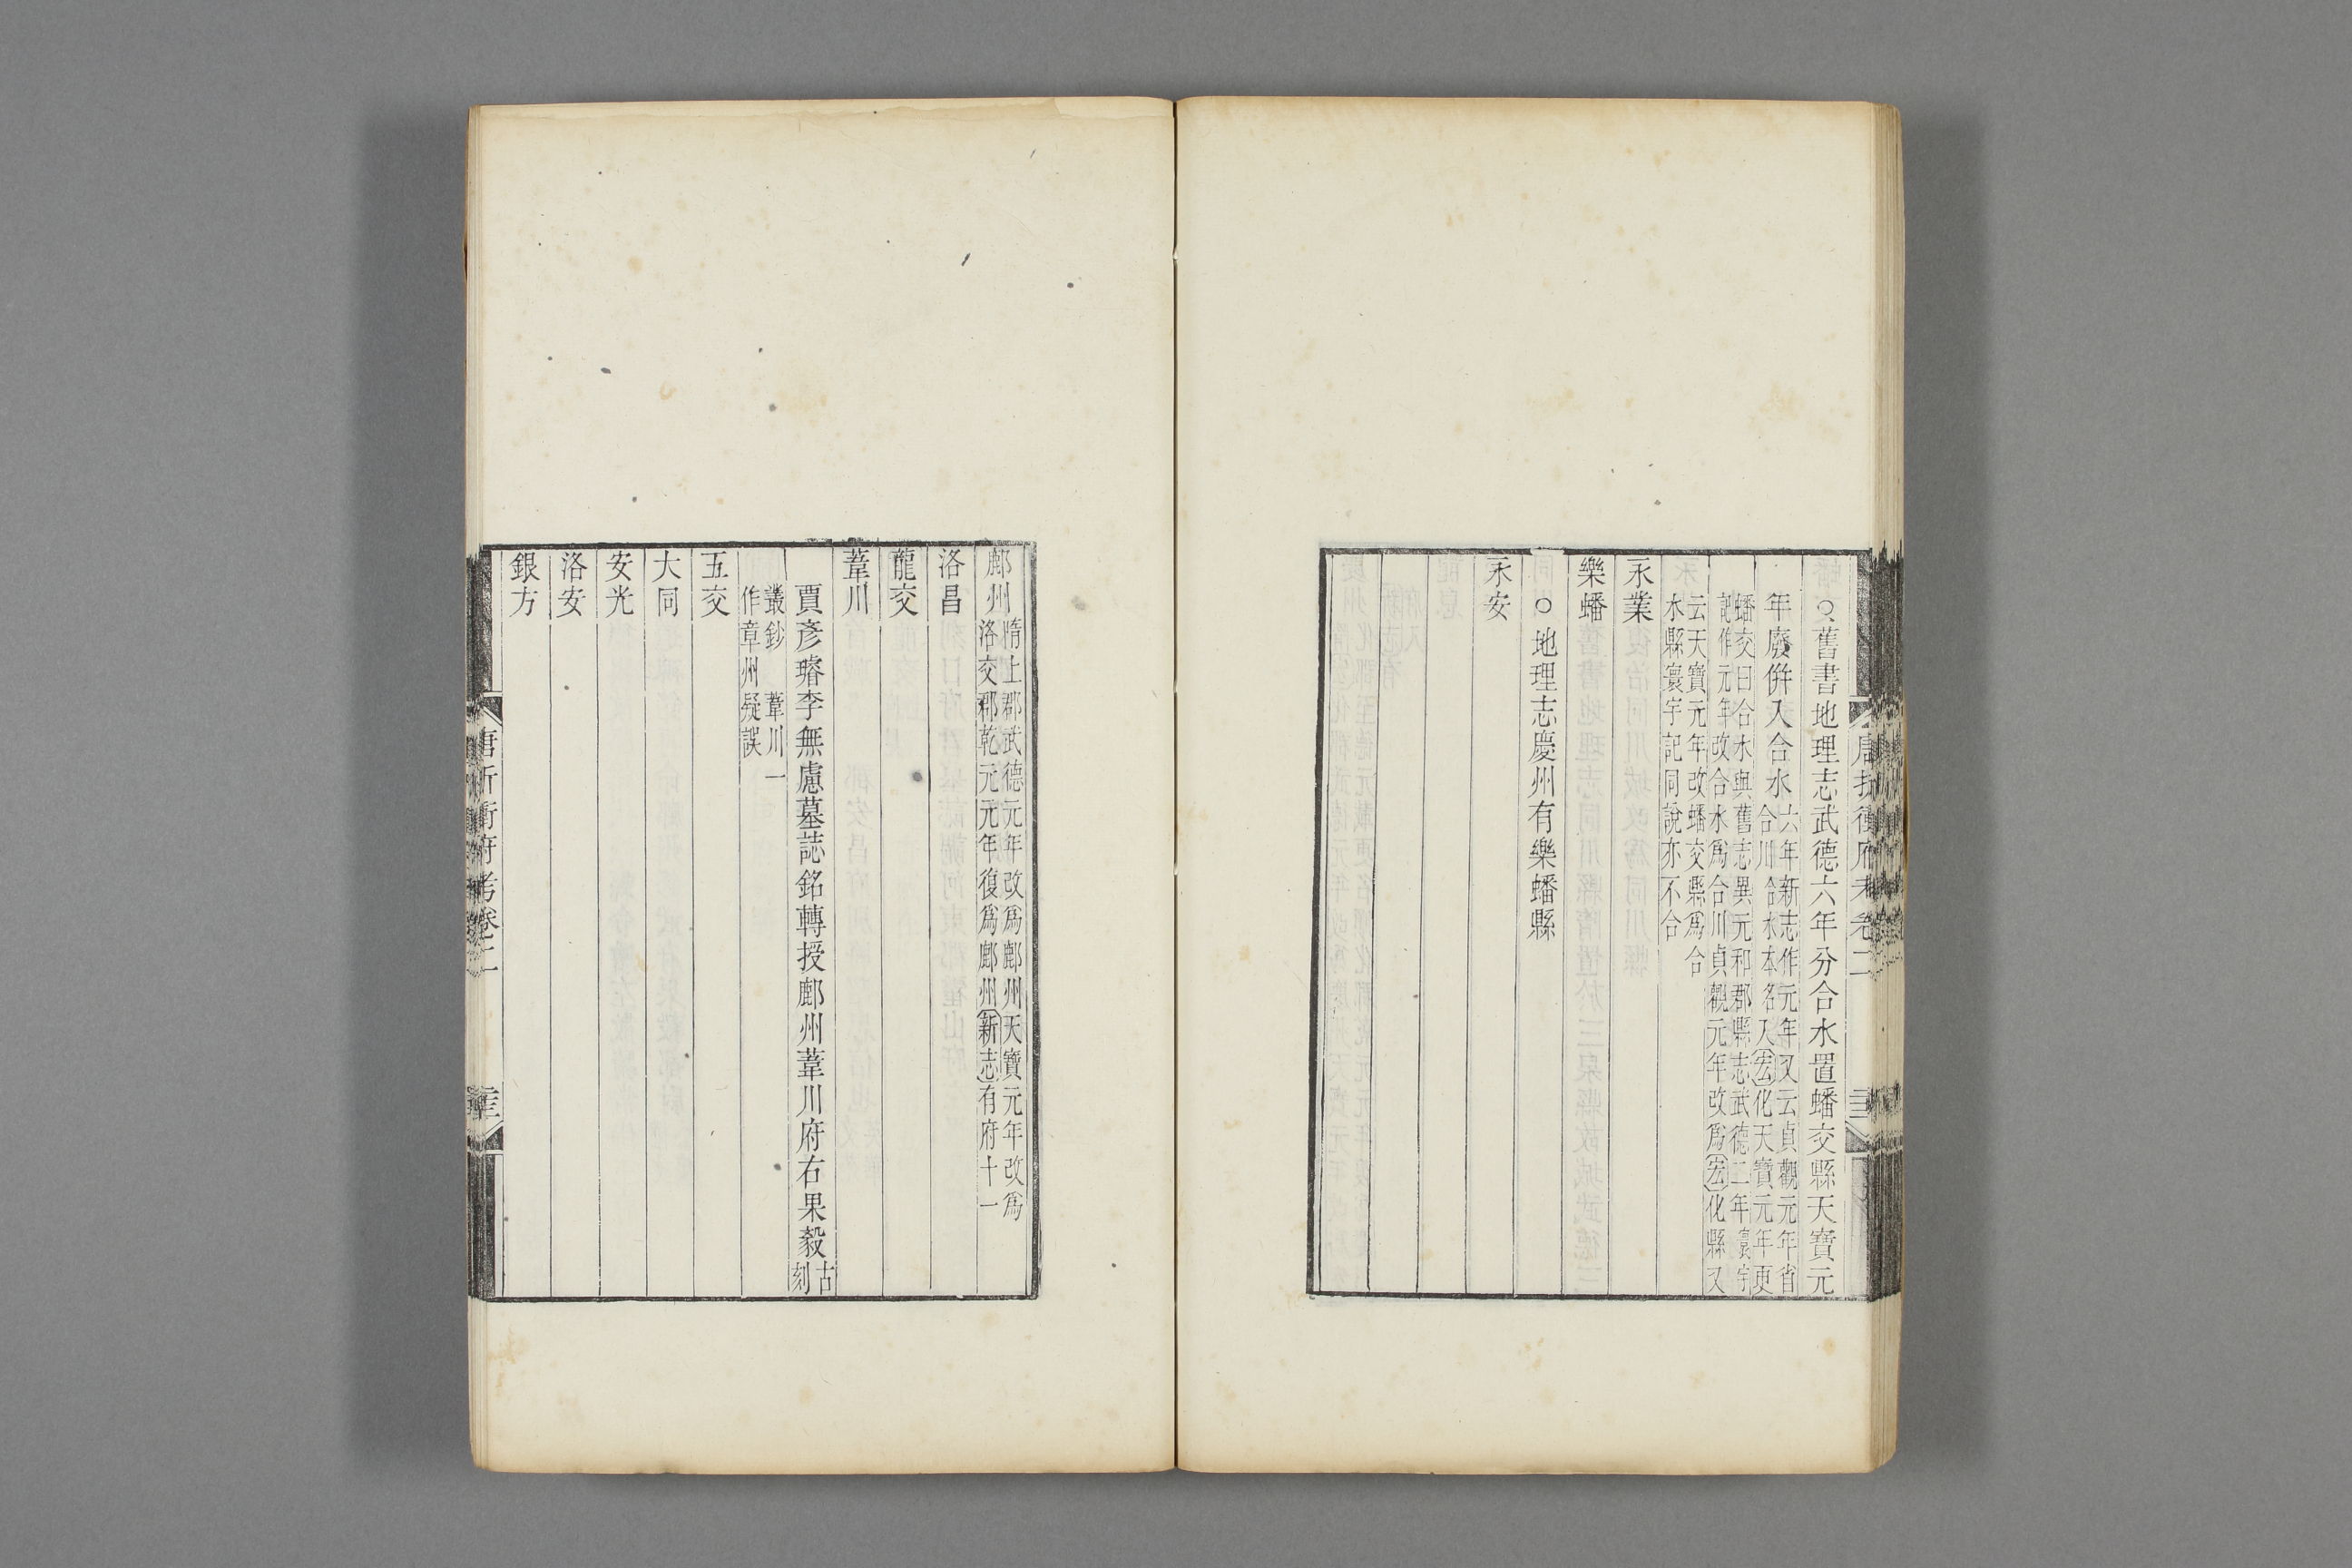 唐折衝府考卷二
○舊書地理志武德六年分合水置蟠交縣天寶元
年廢併入合水六年新志作元年又云貞觀元年省
合川合水本名入宏化天寶元年更
蟠交曰合水與舊志異元和郡縣志武德二年寰宇
記作元年改合水爲合川貞觀元年改爲宏化縣又
云天寶元年改蟠交縣爲合
水縣寰宇記同說亦不合
永業
樂蟠
○地理志慶州有樂蟠縣
永安
鄜州隋上郡武德元年改爲鄜州天寶元年改爲
洛交郡乾元元年復爲鄜州新志有府十一
洛昌
龍交
葦川
賈彥璿李無慮墓誌銘轉授鄜州葦川府右果毅古
刻
叢鈔 葦川一
作章州疑誤
五交
大同
安光
洛安
銀方
唐折衝府考卷二